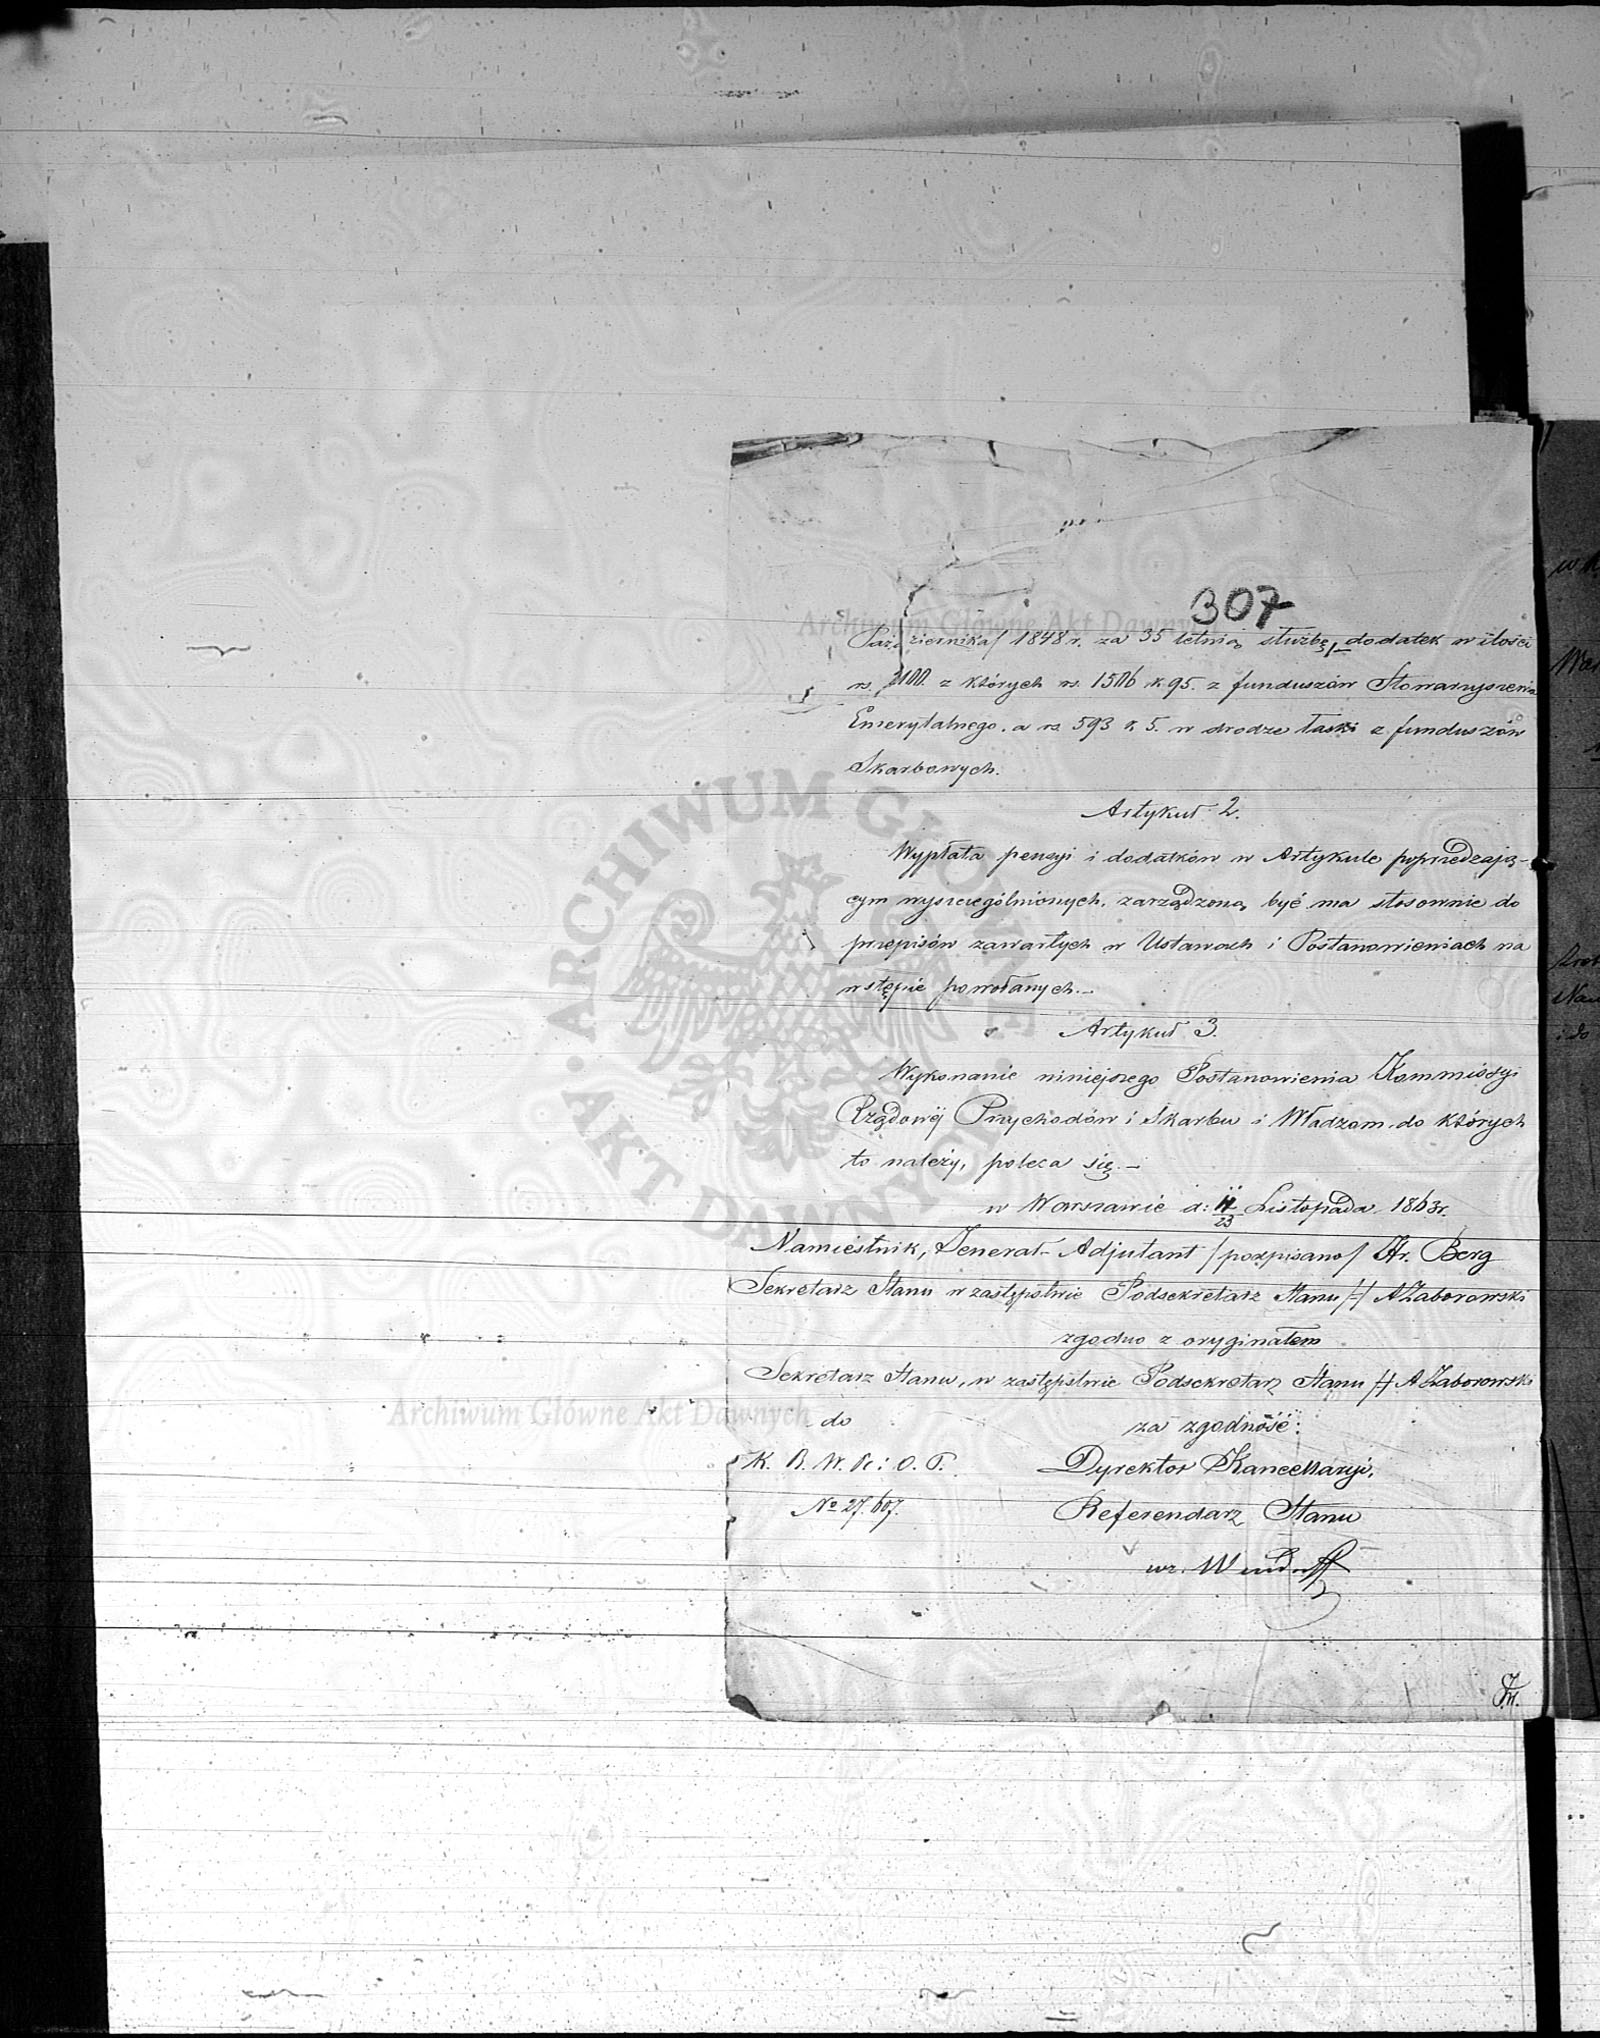 307
Października/ 1848 r. za 35 letnią służbę,/– dodatek w ilości
rs. 2100. z których rs. 1506 k 95. z funduszów Stowarzyszenia
Emerytalnego, a rs. 593 k 5. w drodze łaski z funduszów
Skarbowych.
Artykuł 2.
Wypłata pensyi i dodatków w Artykule poprzedzają-
cym wyszczególnionych, zarządzoną być ma stosownie do
przepisów zawartych w Ustawach i Postanowieniach na
wstępie powołanych.–
Artykuł 3.
Wykonanie niniejszego Postanowienia Kommissyi
Rządowéj Przychodów i Skarbu i Władzom, do których
to należy, poleca się.–
w Warszawie d: 11/23 Listopada 1863 r.
Namiestnik, Jenerał-Adjutant /podpisano/ Hr. Berg
Sekretarz Stanu w zastępstwie Podsekretarz Stanu /–/ A Zaborowski
zgodno z oryginałem
Sekretarz Stanu, w zastępstwie Podsekretarz Stanu /–/ A Zaborowski
do
za zgodność:
K. R. W. R: i O. P.
Dyrektor Kancellaryi,
No 27,607.
Referendarz Stanu
wz.
Archiwum Główne Akt Dawnych
ARCHIWUM GŁÓWNE AKT DAWNYCH
Archiwum Główne Akt Dawnych